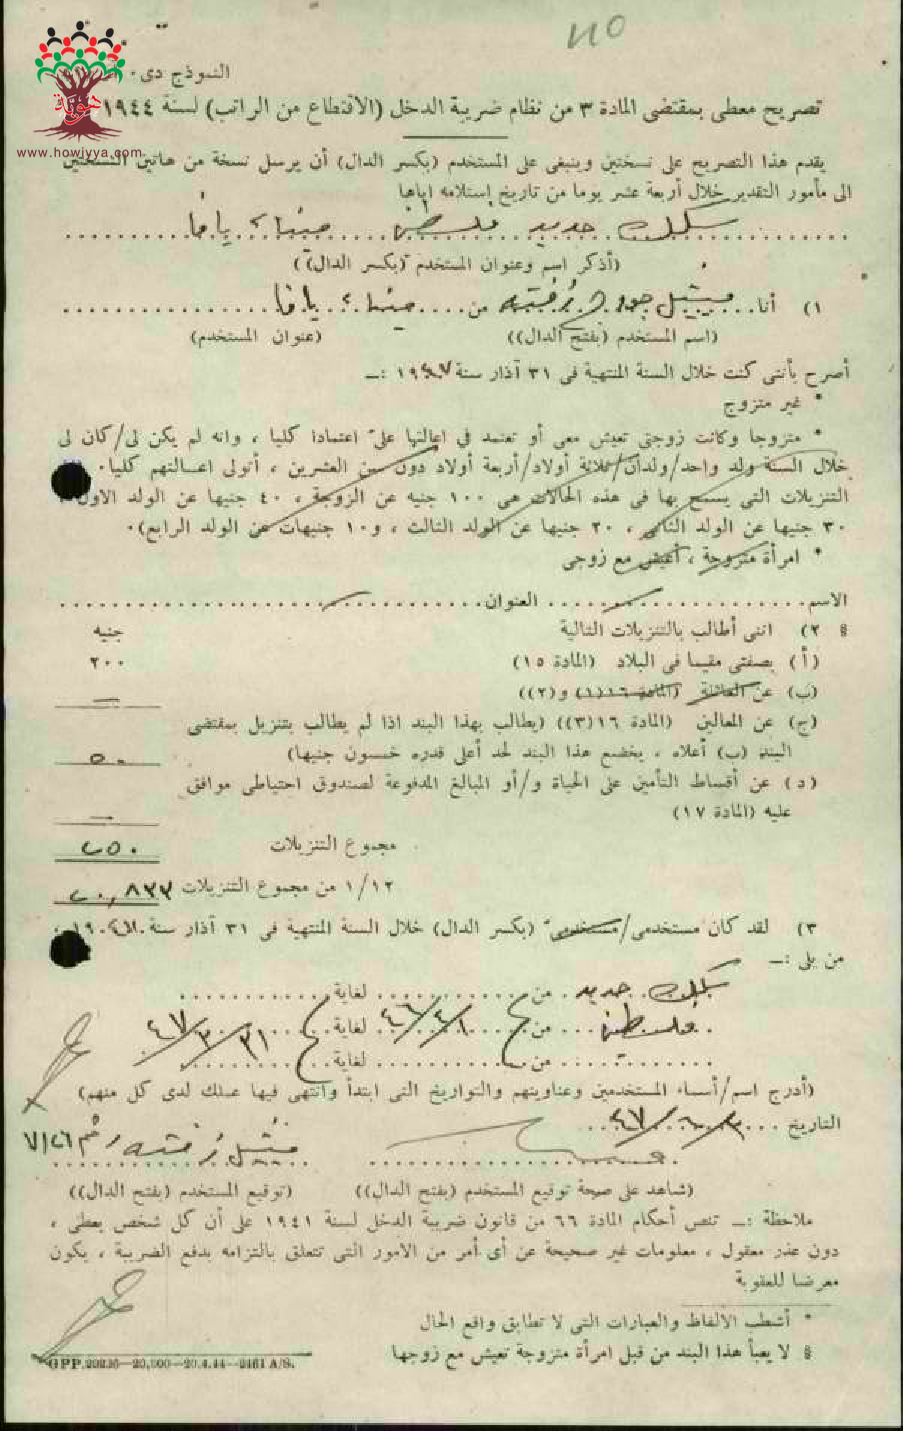 ١١٥
هوية
www.howiyya.com
النموذج دى٠
تصريح معطى بمقتضى المادة ٣ من نظام ضريبة الدخل (الاقتطاع من الراتب) لسنة ١٩٤٤
يقدم هذا التصريح على نسختين وينبغى على المستخدم (بكسر الدال) أن يرسل نسخة من هاتين النسختين
الى مأمور التقدير خلال أربعة عشر يوما من تاريخ إستلامه اياها
سكك حديد فلسطين ميناء يافا
(أذكر اسم وعنوان المستخدم (بكسر الدال))
١) أنا من ميناء يافا
(اسم المستخدم (بفتح الدال)) (عنوان المستخدم)
أصرح بأننى كنت خلال السنة المنتهية فى ٣١ آذار سنة ١٩٤٧ :ــ
* غير متزوج
* متزوجا وكانت زوجتى تعيش معى أو تعتمد في اعالتها علىّ اعتمادا كليا ، وانه لم يكن لى/كان لى
خلال السنة ولد واحد/ولدان/ثلاثة أولاد/أربعة أولاد دون سن العشرين ، أتولى اعالتهم كليا٠
التنزيلات التى يسمح بها فى هذه الحالات هى ١٠٠ جنيه عن الزوجة ، ٤٠ جنيها عن الولد الاول
٣٠ جنيها عن الولد الثانى ، ٢٠ جنيها عن الولد الثالث ، و١٠ جنيهات عن الولد الرابع)٠
* امرأة متزوجة ، أعيش مع زوجى
الاسم العنوان
§ ٢) اننى أطالب بالتنزيلات التالية جنيه
(أ) بصفتى مقيما فى البلاد (المادة ١٥) ٢٠٠
(ب) عن العائلة (المادة ١٦(١) و(٢)) —
(ج) عن المعالين (المادة ١٦(٣)) (يطالب بهذا البند اذا لم يطالب بتنزيل بمقتضى
البند (ب) أعلاه ، يخضع هذا البند لحد أعلى قدره خمسون جنيها) ٥٠
(د) عن أقساط التأمين على الحياة و/أو المبالغ المدفوعة لصندوق احتياطى موافق
عليه (المادة ١٧) —
مجموع التنزيلات ٢٥٠
١/١٢ من مجموع التنزيلات ٢٠,٨٣٣
٣) لقد كان مستخدمى/مستخدمىّ (بكسر الدال) خلال السنة المنتهية فى ٣١ آذار سنة
من يلى :ــ
سكك حديد من لغاية
فلسطين من ٤٦/٤/١ لغاية ٤٧/٣/٣١
من لغاية
(أدرج اسم/أسماء المستخدمين وعناوينهم والتواريخ التى ابتدأ وانتهى فيها عملك لدى كل منهم)
التاريخ ٤٧/٦/٣
رقم ٧١٢٦
(شاهد على صحة توقيع المستخدم (بفتح الدال)) (توقيع المستخدم (بفتح الدال))
ملاحظة :ــ تنص أحكام المادة ٦٦ من قانون ضريبة الدخل لسنة ١٩٤١ على أن كل شخص يعطى ،
دون عذر معقول ، معلومات غير صحيحة عن أى أمر من الامور التى تتعلق بالتزامه بدفع الضريبة ، يكون
معرضا للعقوبة
* أشطب الالفاظ والعبارات التى لا تطابق واقع الحال
§ لا يعبأ هذا البند من قبل امرأة متزوجة تعيش مع زوجها
GPP.20236—20,000—20.4.44—2461 A/S.